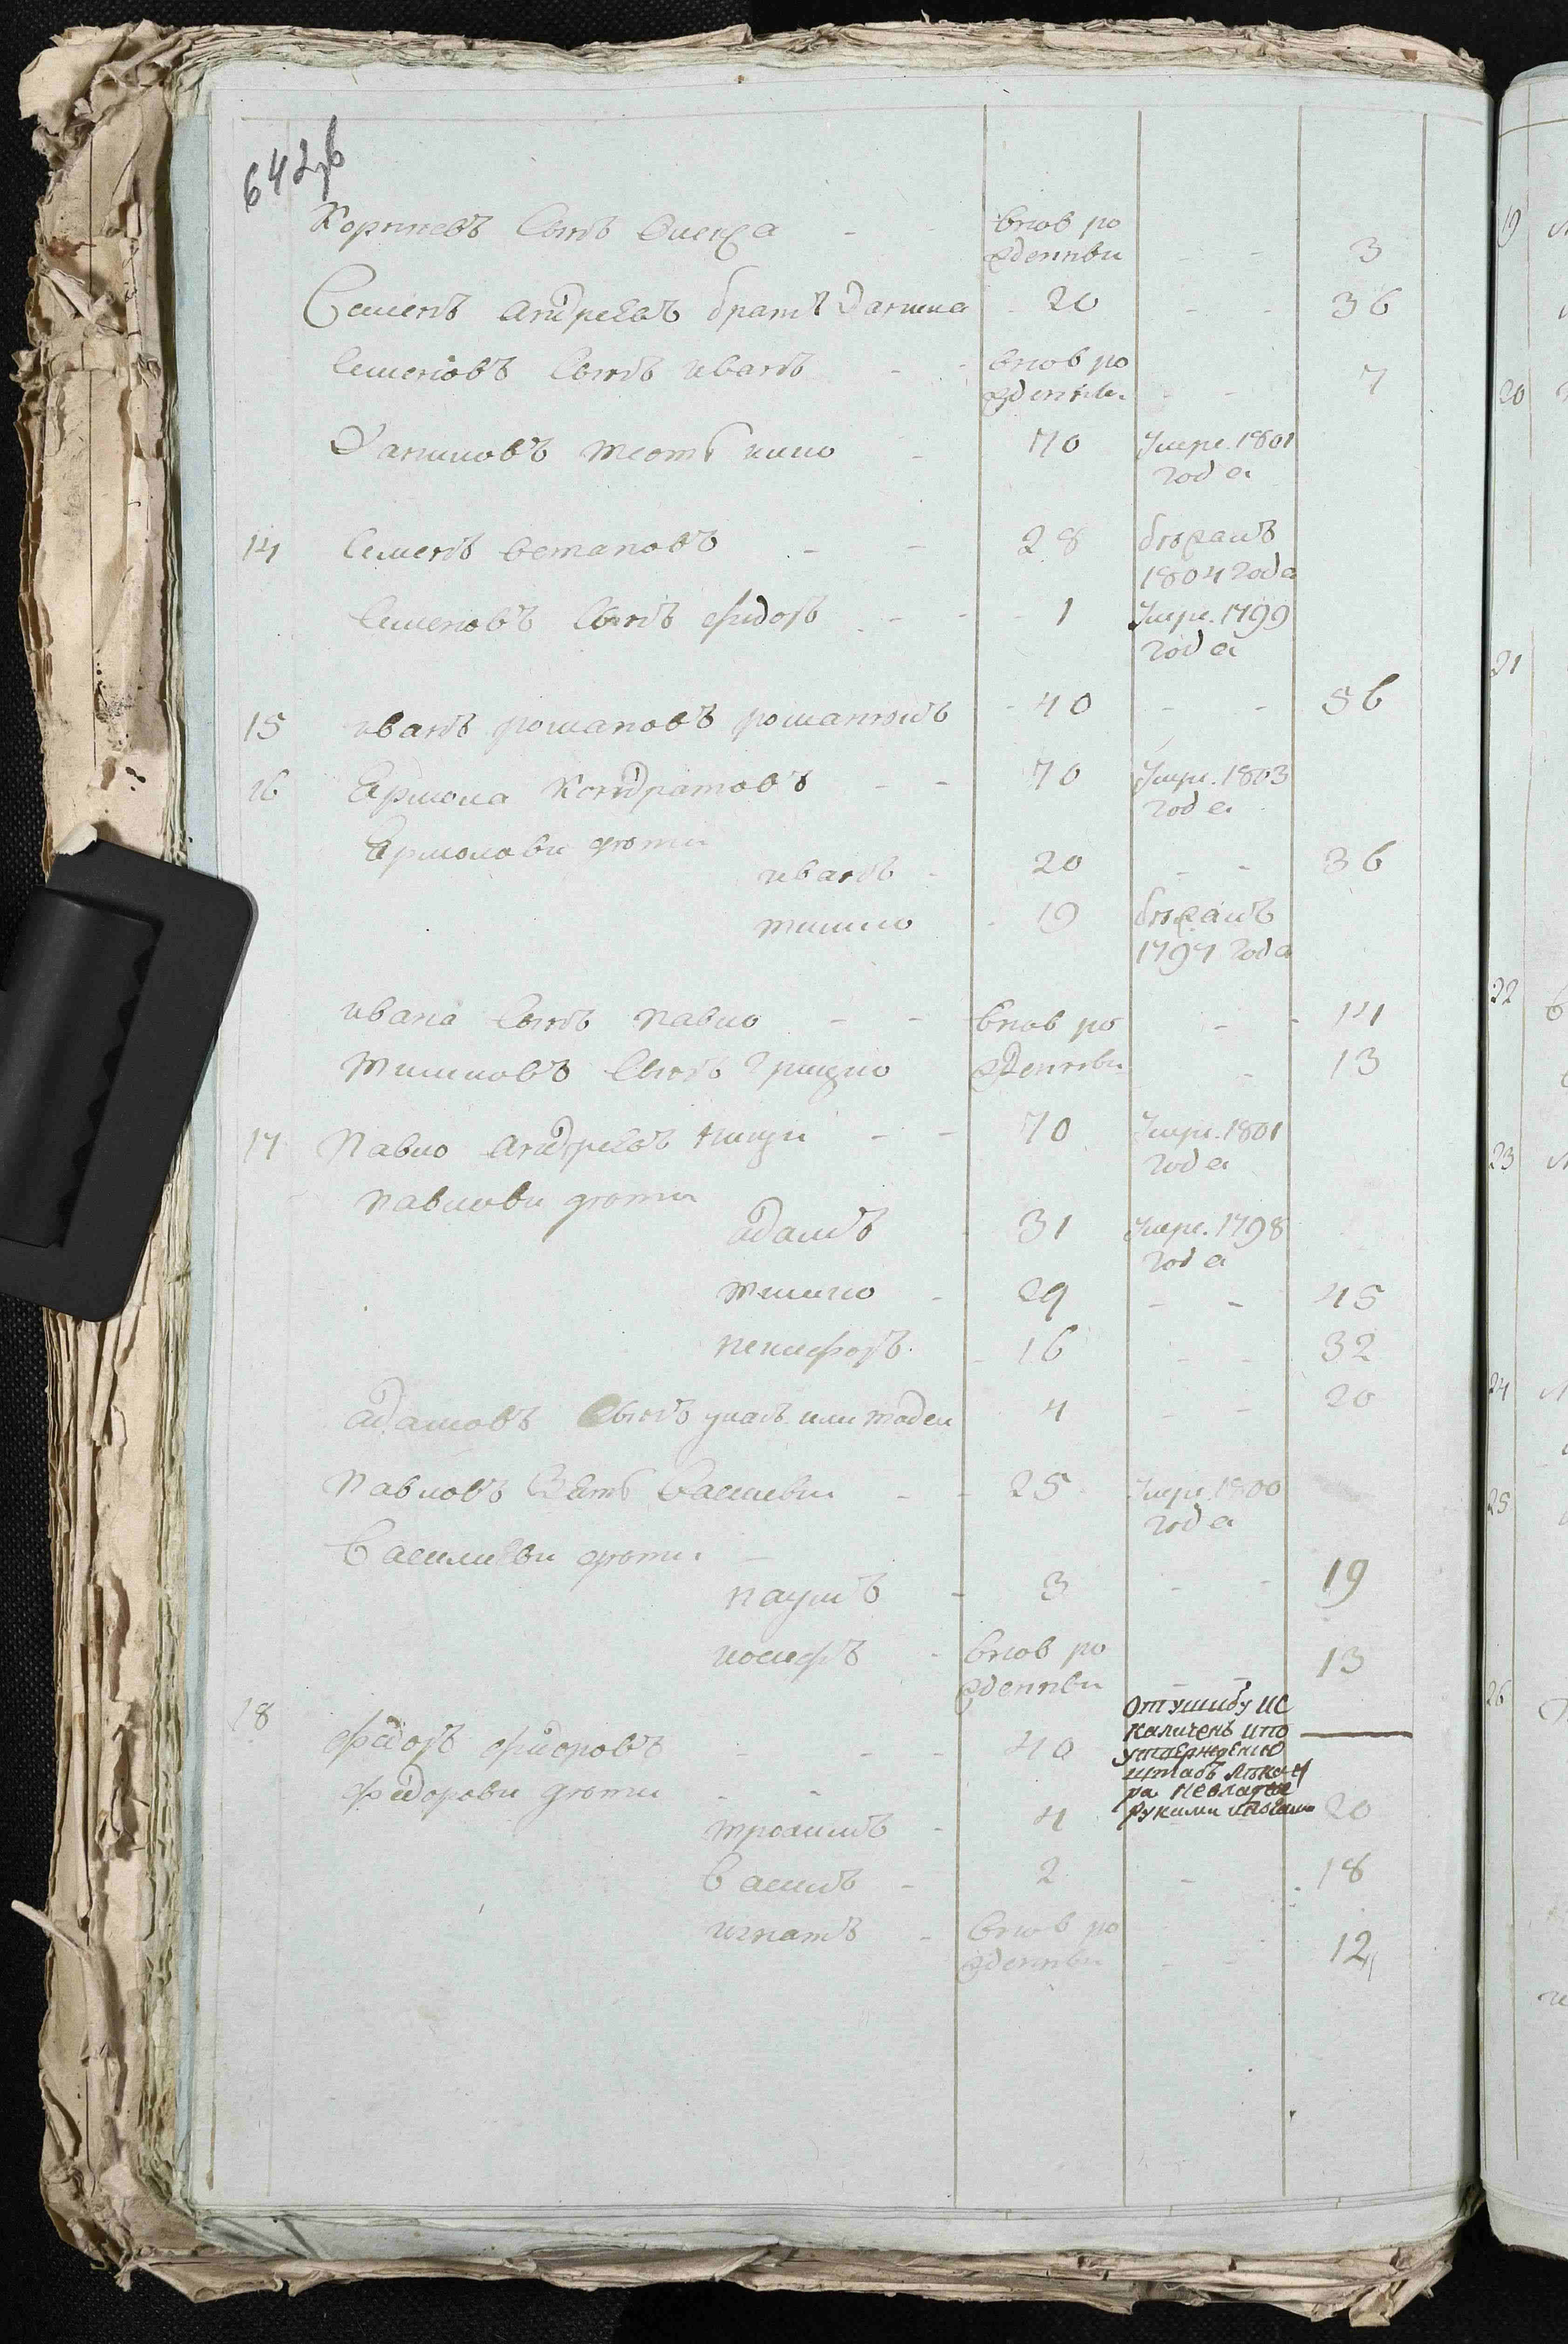 642об
Корниевъ Сынъ Олекса - внов ро
жденны - - 3
Семенъ андреевъ братъ Данила 20 - - 36
Семеновъ Сынъ иванъ - - внов ро
жденны - - 7
Даниловъ тесть - 70 Умре. 1801
года
14 Семенъ остаповъ - - 28 бѣжалъ
1804 года
Семеновъ Сынъ фидоръ - - 1 Умре. 1799
года
15 иванъ романовъ - 40 - - 56
16 Ермола Кондратовъ - - 70 Умре. 1803
года
Ермолови дѣти
иванъ - 20 - - 36
тишко - 19 бѣжалъ
1797 года
ивана Сынъ павло - - внов ро - - 14
тишковъ Сынъ грицко жденны - 13
17 Павло андреевъ - - 70 Умре. 1801
года
павлови дѣти
адамъ - 31 Умре. 1798
года
тишко - 29 - - 45
некифоръ - 16 - - 32
адамовъ Сынъ или тадей 4 - - 20
Павловъ Зять Василей - - 25 Умре. 1800
года
Василиеви дѣти -
наумъ - 3 - - 19
иосифъ - внов ро
жденны - 13
18 федоръ фидоровъ - - - 40 От ушибу ис
каличенъ ипо
утверждению
штабъ лѣка
ра невладѣе
руками иногами
федорови дѣти - -
трохимъ - 4 20
Василь - 2 - - 18
игнатъ - внов ро
жденны - - 12
19
20
21
22
23
24
25
26